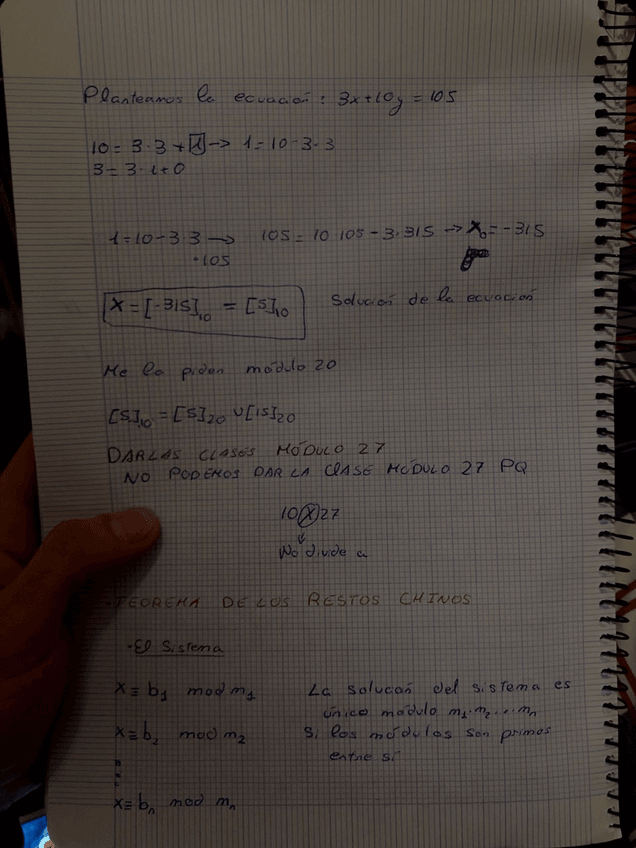 Planteamos la ecuación: 3x+10y = 105
10 = 3·3 + 1 → 1 = 10-3·3
3 = 3·1+0
1 = 10-3·3 → 105 = 10·105-3·315 → x₀ = -315
·105
X = [-315]₁₀ = [5]₁₀ Solución de la ecuación
Me la piden módulo 20
[5]₁₀ = [5]₂₀ ∪ [15]₂₀
DAR LAS CLASES MÓDULO 27
NO PODEMOS DAR LA CLASE MÓDULO 27 PQ
10 ∤ 27
↓
No divide a
·TEOREMA DE LOS RESTOS CHINOS
·El Sistema
X ≡ b₁ mod m₁ La solución del sistema es
único módulo m₁·m₂...mₙ
X ≡ b₂ mod m₂ Si los módulos son primos
entre sí
⋮
X ≡ bₙ mod mₙ